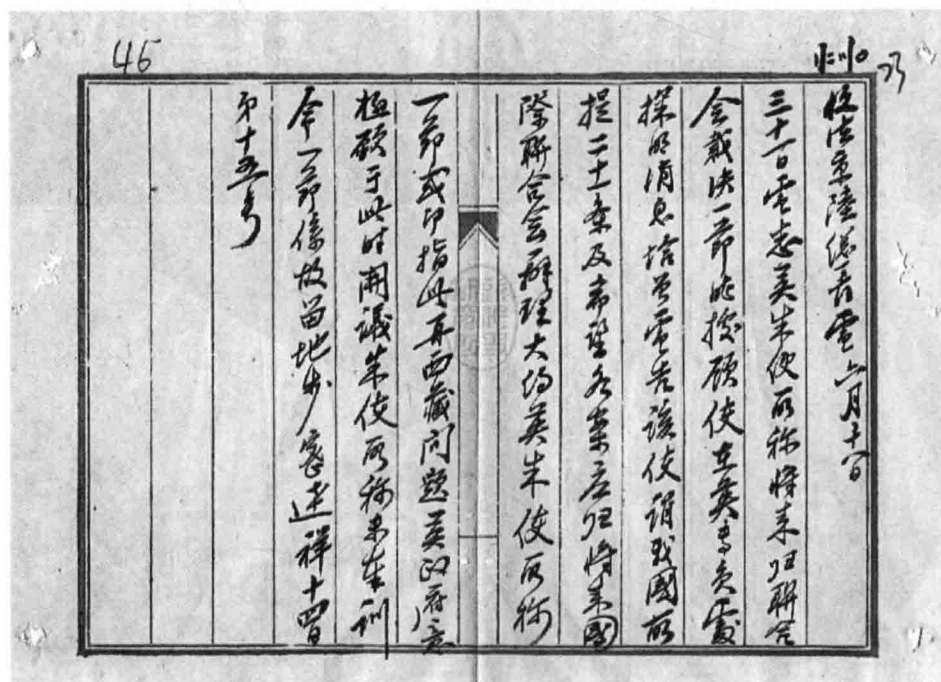 46
收法京陸總長電 六月十八日
三十一日電悉英朱使所称將来归联合
会裁决一節昨據顧使在英專員處
探明消息恰與電告該使謂我國所
提二十一条及希望各案应归將来國
際联合会辦理大約英朱使所称
一節或即指此再西藏问题英政府意
極願于此时開議朱使所称未奉訓
令一節係故留地步密達祥十四日
第十五号